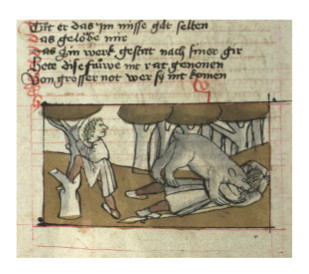 Tůt er das im nisse gåt selten
das gelobe mir
das Sin werk gestat nach siner gir
Hete dise frŭwe nit rat genomen
Von grosser not wer sy nit komen